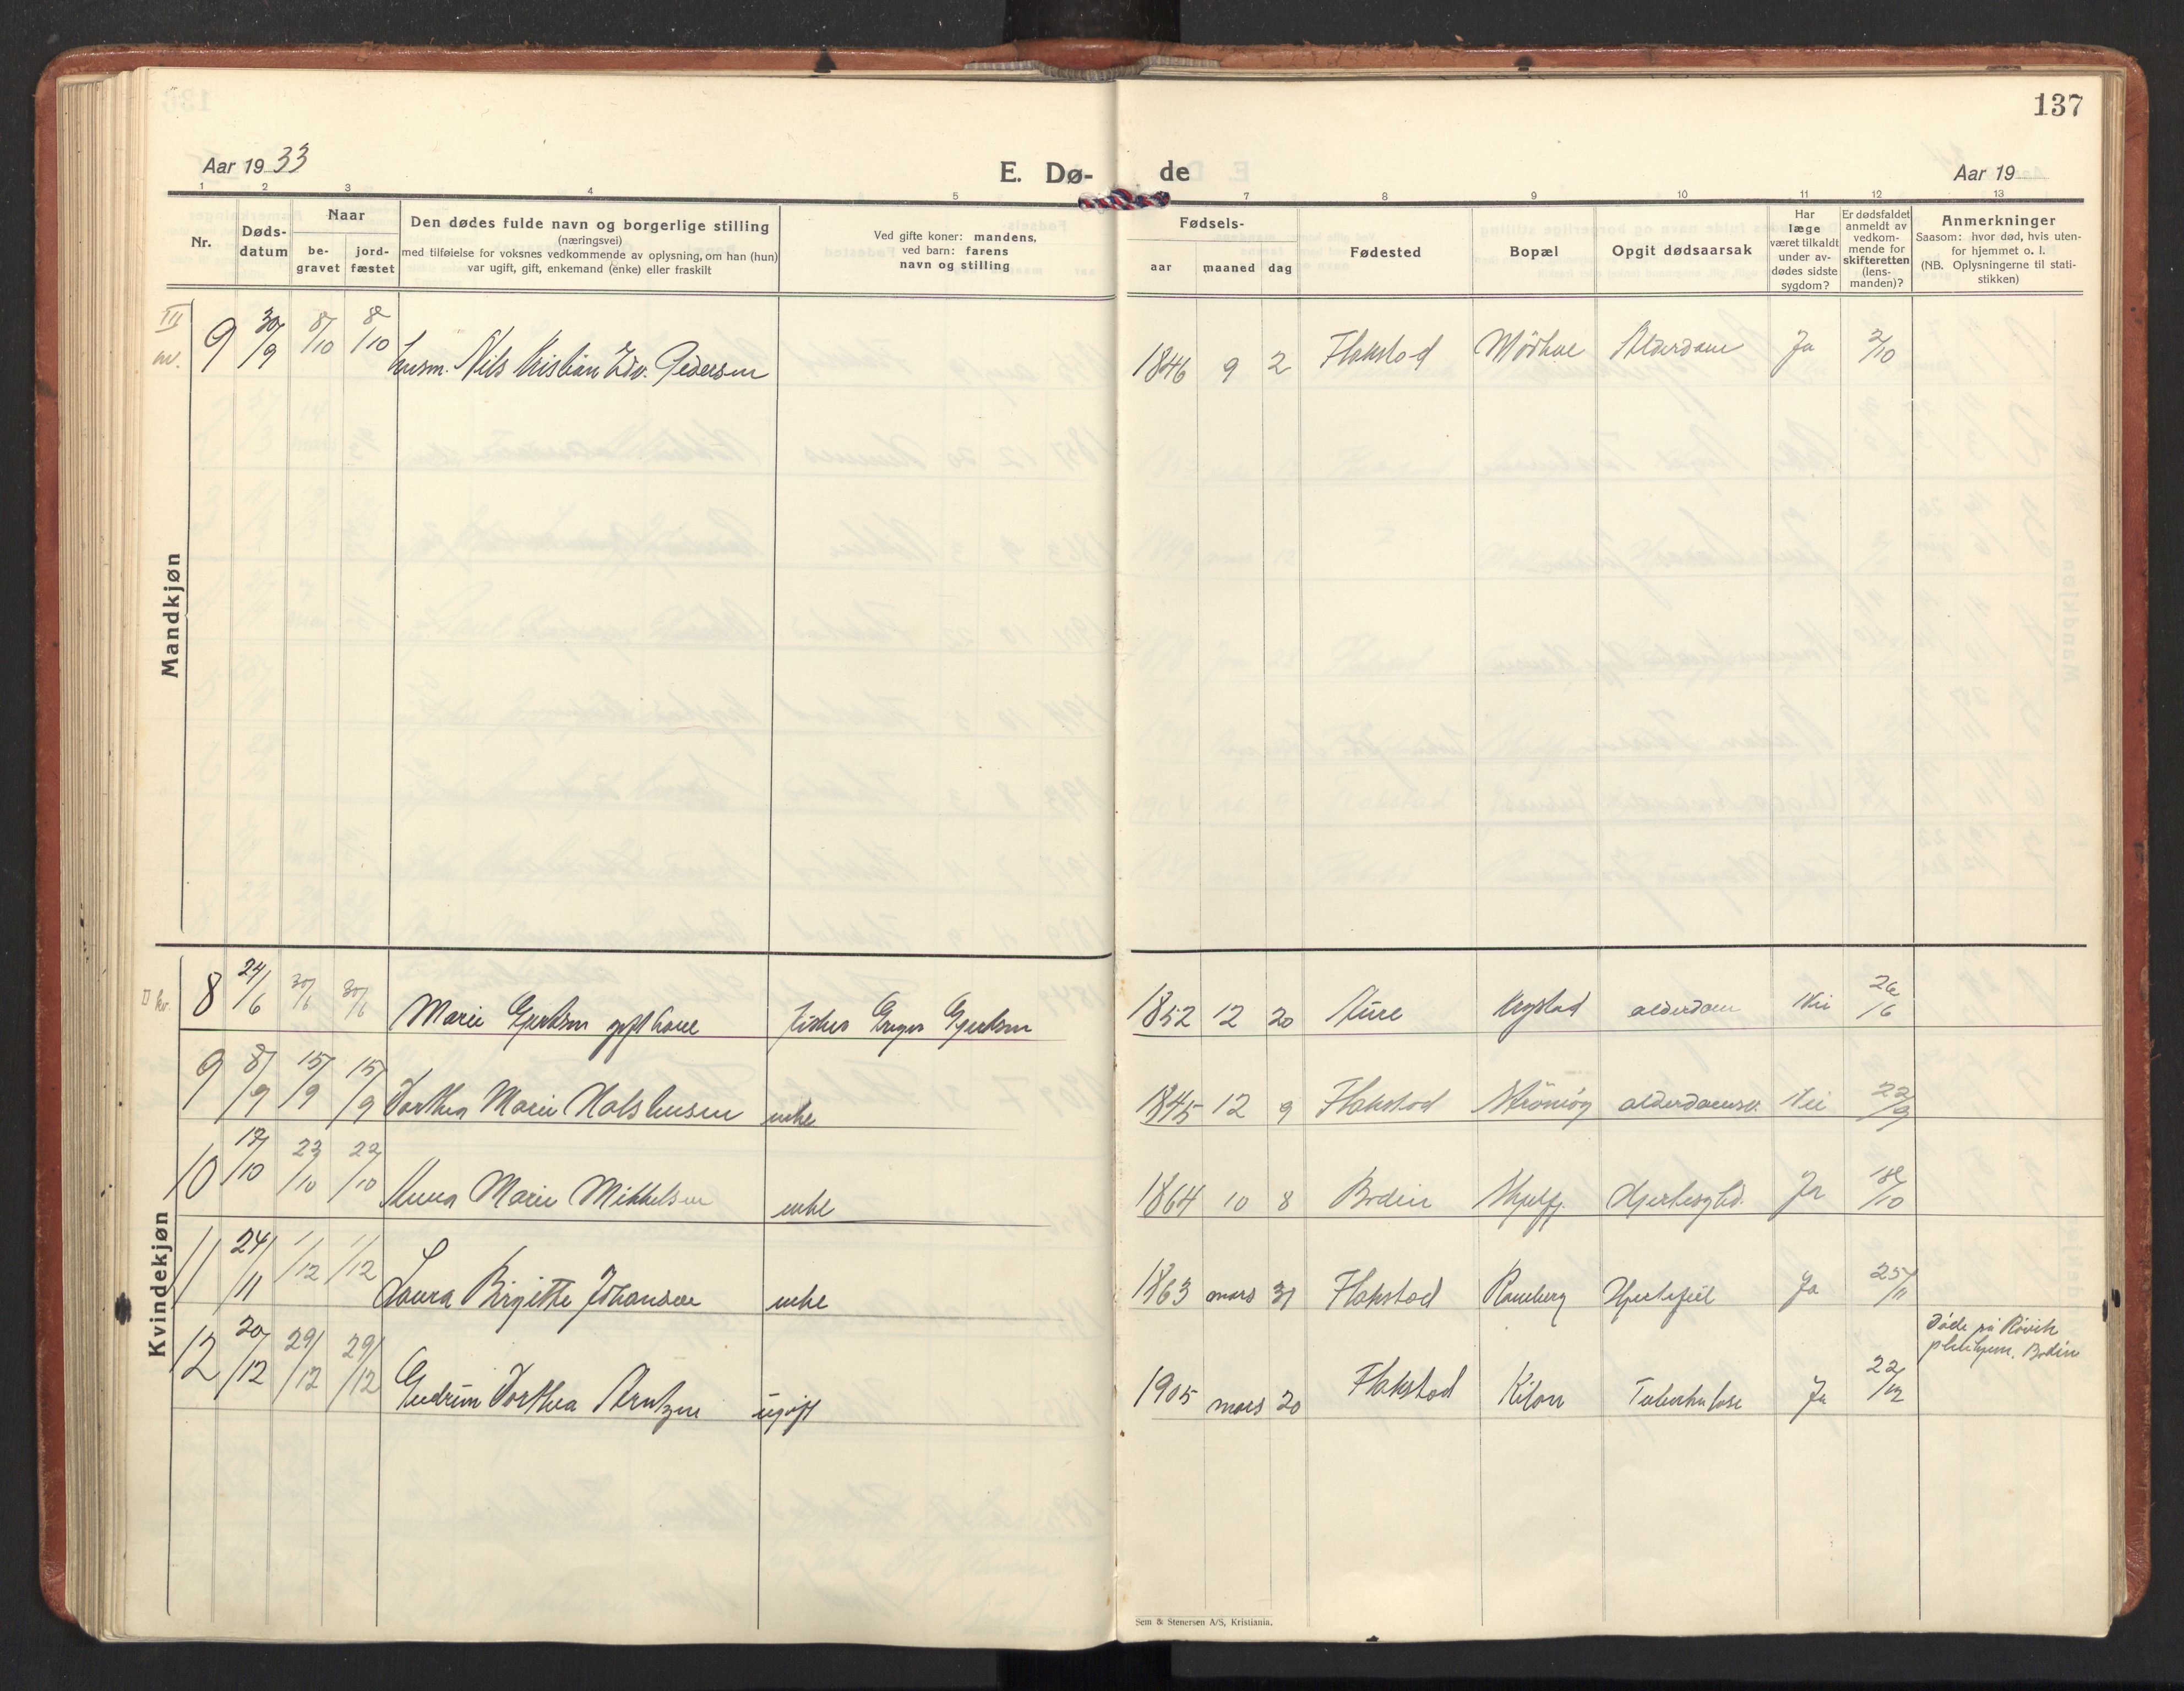 137
Aar 19 33
E. Dø-
de
Aar 19
1 2 3 4 5 7 8 9 10 11 12 13
Nr.
Døds-
datum
Naar
be-
gravet
jord-
fæstet
Den dødes fulde navn og borgerlige stilling
(næringsvei)
med tilføielse for voksnes vedkommende av oplysning, om han (hun)
var ugift, gift, enkemand (enke) eller fraskilt
Ved gifte koner: mandens,
ved barn: farens
navn og stilling
Fødsels-
aar
maaned
dag
Fødested
Bopæl
Opgit dødsaarsak
Har
læge
været tilkaldt
under av-
dødes sidste
sygdom?
Er dødsfaldet
anmeldt av
vedkom-
mende for
skifteretten
(lens-
manden)?
Anmerkninger
Saasom: hvor død, hvis uten-
for hjemmet o. l.
(NB. Oplysningerne til stati-
stikken)
Mandkjøn
III
9 30/9 8/10 8/10 husm. Nils Kristian Edv. Pedersen 1846 9 2 Flakstad Alderdom Ja 2/10
Kvindekjøn
II kv.
8 24/6 30/6 30/6 Marie Gjertsen gift kone fisker Gjertsen 1852 12 20 Aure alderdom Nei 26/6
9 8/9 15/9 15/9 Dorthea Marie Nalshusen enke 1845 12 9 Flakstad Nei 22/9
10 17/10 23/10 22/10 Anna Marie Mikkelsen enke 1864 10 8 Bodin Ja 18/10
11 24/11 1/12 1/12 Laura Birgitte Johansen enke 1863 mars 31 Flakstad Ramberg Hjertefeil Ja 25/11
12 20/12 29/12 29/12 Gudrun Dorthea Arntzen ugift 1905 mars 20 Flakstad Kilan Tuberkulose Ja 22/12
Døde på Røvik
pleiehjem. Bodin
Sem & Stenersen A/S, Kristiania.